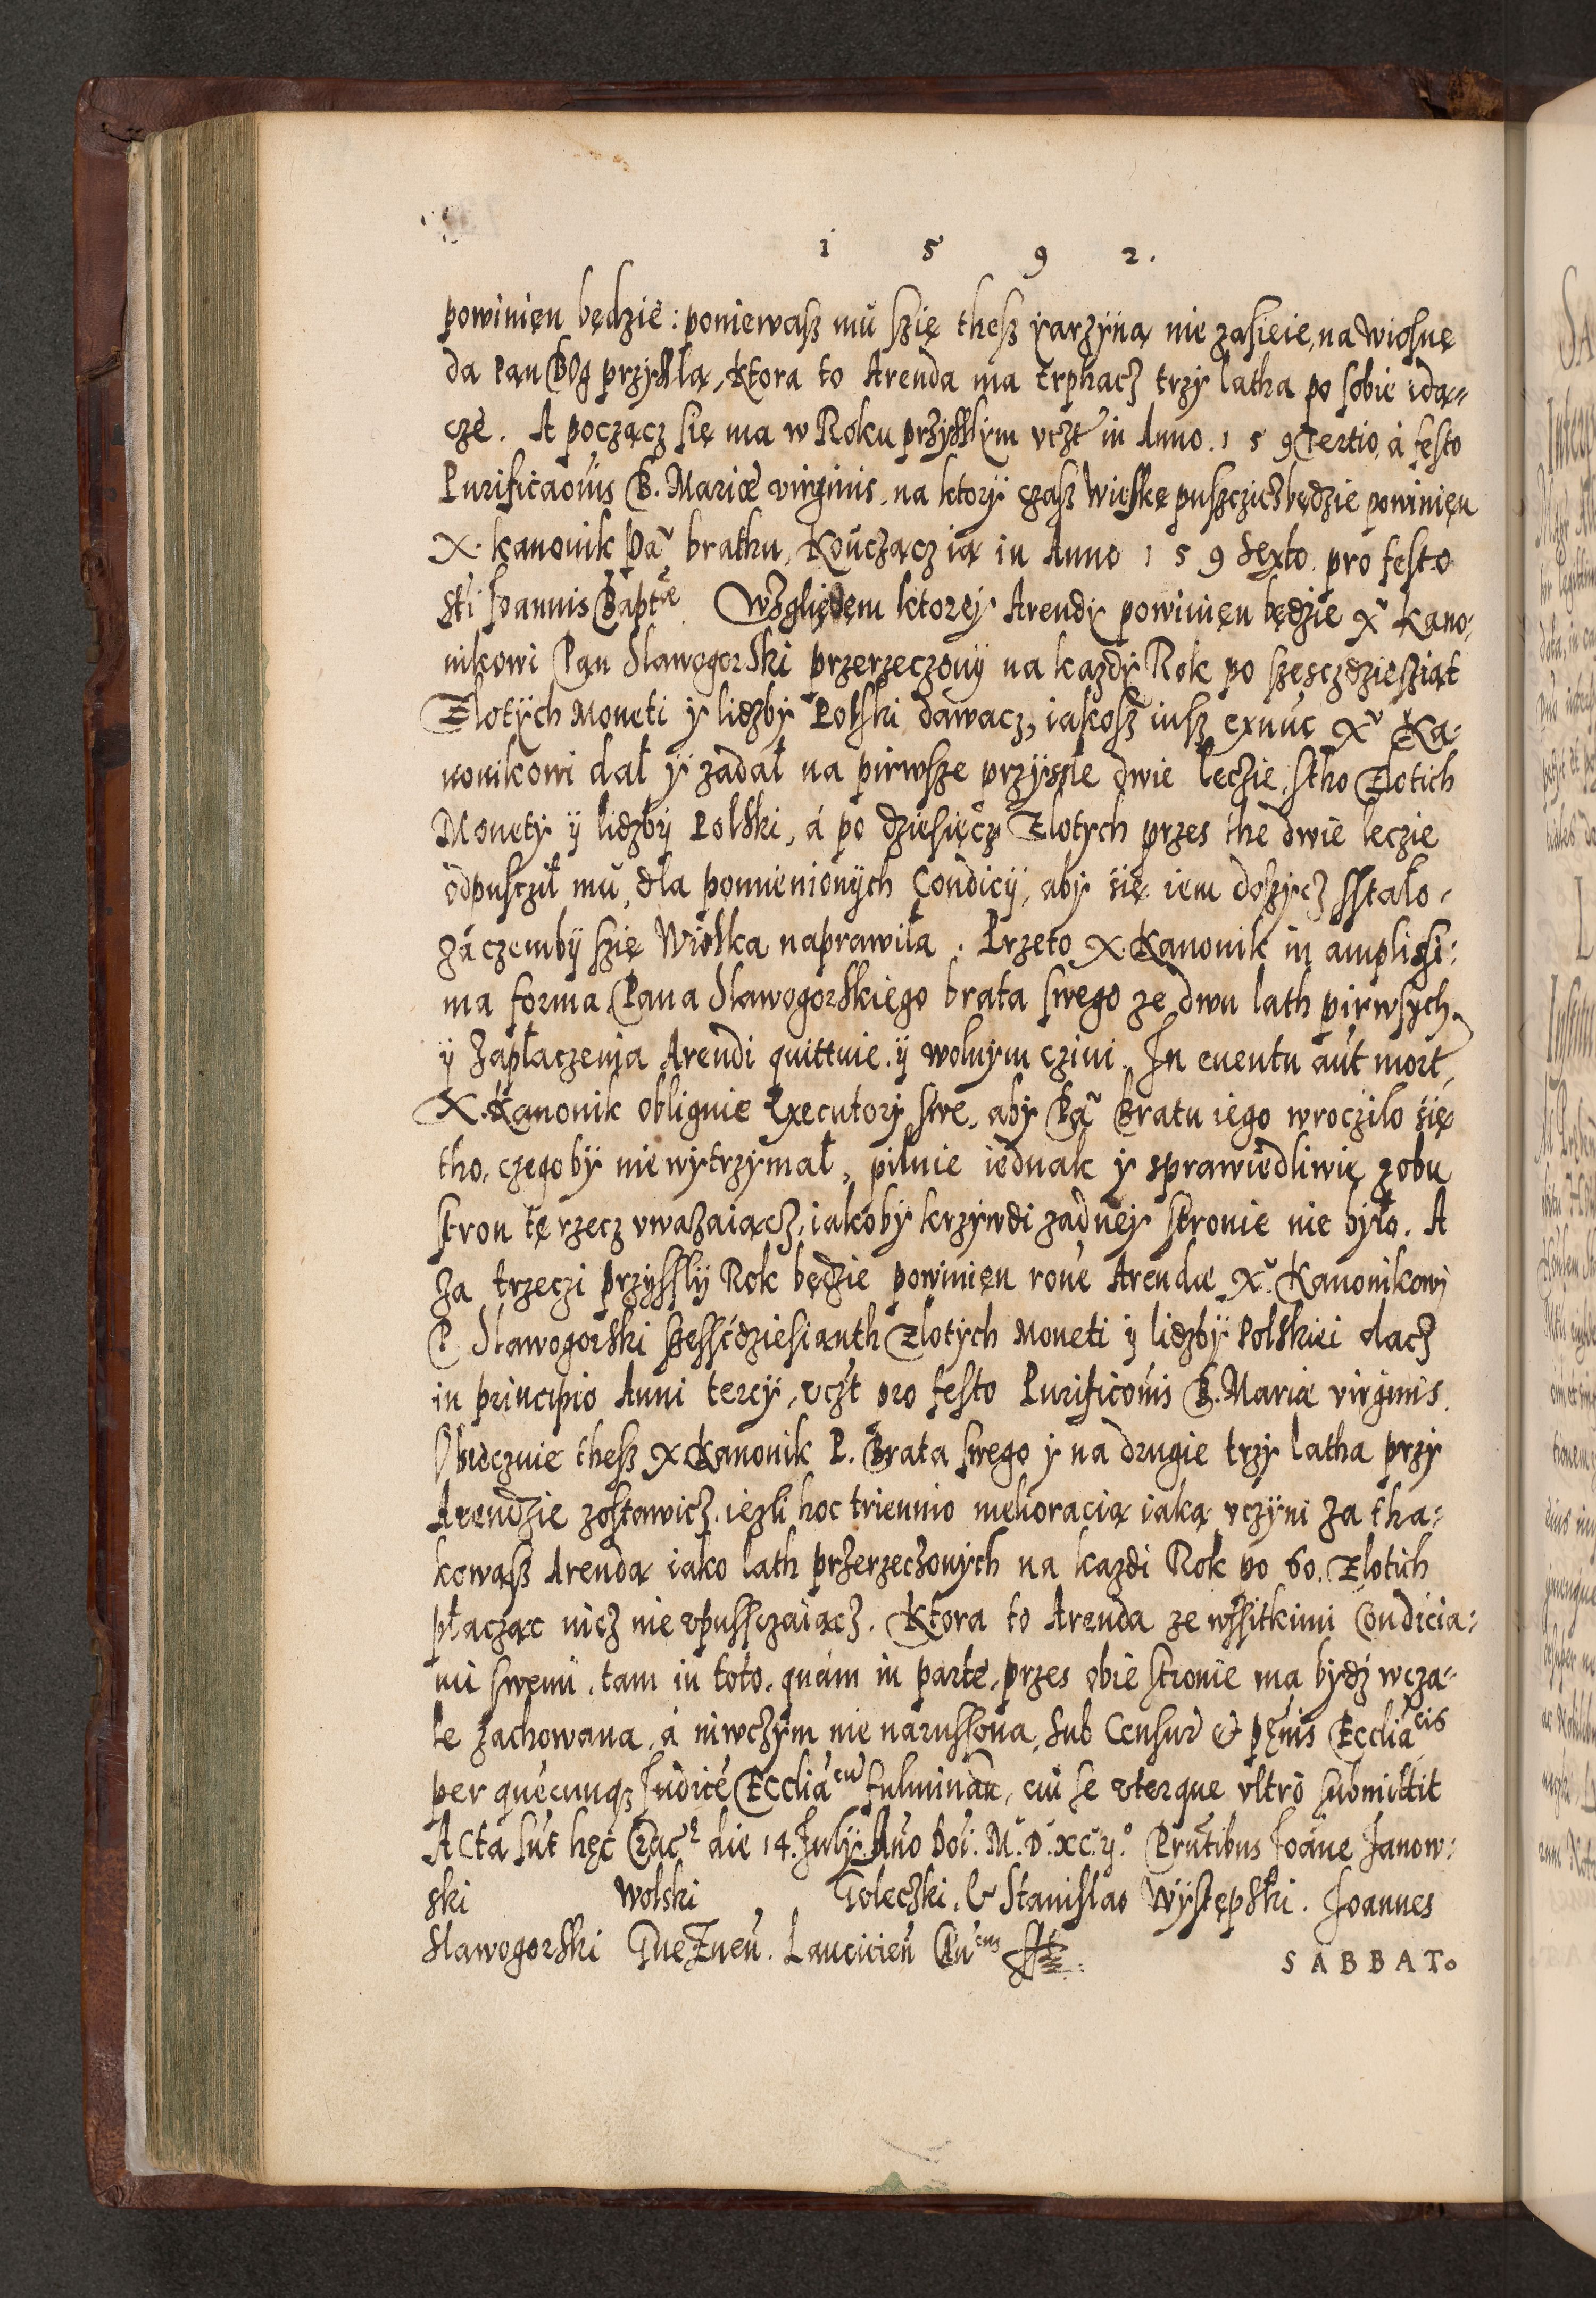 1 5 9 2.
powinięn będzie: poniewasz mu szię thesz yarzyną nie zasieie, na wiosnę
da Pan BOg przyszlą, Ktora to Arenda ma trphacz trzy latha po sobie idą=
cze. A począcz się ma w Roku przyszlym vczt in Anno. 1 5 9 Tertio, á festo
Purificaōuis B. Mariæ virginis, na ktorÿ czasz Wieskę puszczicz będzie powinięn
X. kanonik Pa᷃ brathu, Kończącz ią in Anno 1 5 9 Sexto. pro festo
Sti Joannis Baptæ. Względem ktorej Arendy powinięn będzie X᷃ Kano:
nikowi Pan Slawogorski przerzeczonÿ na kazdy Rok po szęsczdziesziąt
Zlotych Moneti y lidzby Polski dawacz, iakosz iusz exnūc X᷃ Ka-
nonikowi dał ÿ zadał na pirwsze przÿszłe dwie lecżie, stho Zlotich
Monety ÿ lidzbÿ Polski, á po dziesięcz Zlotych przes the dwie leczie
odpuscził mu, dla pomienionÿch Condicÿ, aby się iem dosycz sstało,
záczembÿ szię Wioska naprawiła. Przeto X. Kanonik in amplissi:
ma forma Pana Slawogorskiego brata swego ze dwu lath pirwsych
ÿ Zapłaczenia Arendi quittuie. ÿ wolnym czini. In euentu aut mort,
X. Kanonik obliguie Executory swe, aby Pa᷃ Bratu iego wroczilo się
tho, czego bÿ nie wÿtrzÿmał, pilnie iednak y sprawiedliwie zobu
stron tę rzecz vważaiącz, iakoby krzywdi zadnej stronie nie było. A
Za trzeczi przyssly Rok będzie powinięn rōne Arendæ X᷃. Kanonikowj
P. Slawogorski szesśćdziesianth Zlotych Moneti ÿ lidzbÿ Polskiei dacz
in principio Anni tercÿ, vczt pro festo Purificōnis B. Mariæ virginis.
Obiecznie thesz X. Kanonik P. Brata swego y na drugie trzy latha przy
Arendzie zostawicz, iezli hoc triennio melioracią iaką vczyni Za tha-
kowąsz Arendą iako lath przerzeczonych na kazdi Rok po 60. Zlotich
płacząc nicz nie vpussczaiącz. Ktora to Arenda ze wssitkimi Condicia:
mi swemi, tam in toto, quám in parte, przes obie stronie ma bydź wcza-
le zachowana, á niwczym nie narussona, Sub Censur᷃ & pęnis Eccliácis
per quécunq; Judicé Eccliácu᷃ fulminān, cui se vterque vltrò submittit
ACta sūt hęc Crac᷃ die 14. Julÿ. Año Doī. M.D.XC.ij.° Prńtibus Joāne Janow:
ski Wolski , Goleczki, & Stanislao Występski. Joannes
Slawogorski Gnezneñ. Lanciciēn Cañcus
SABBATo